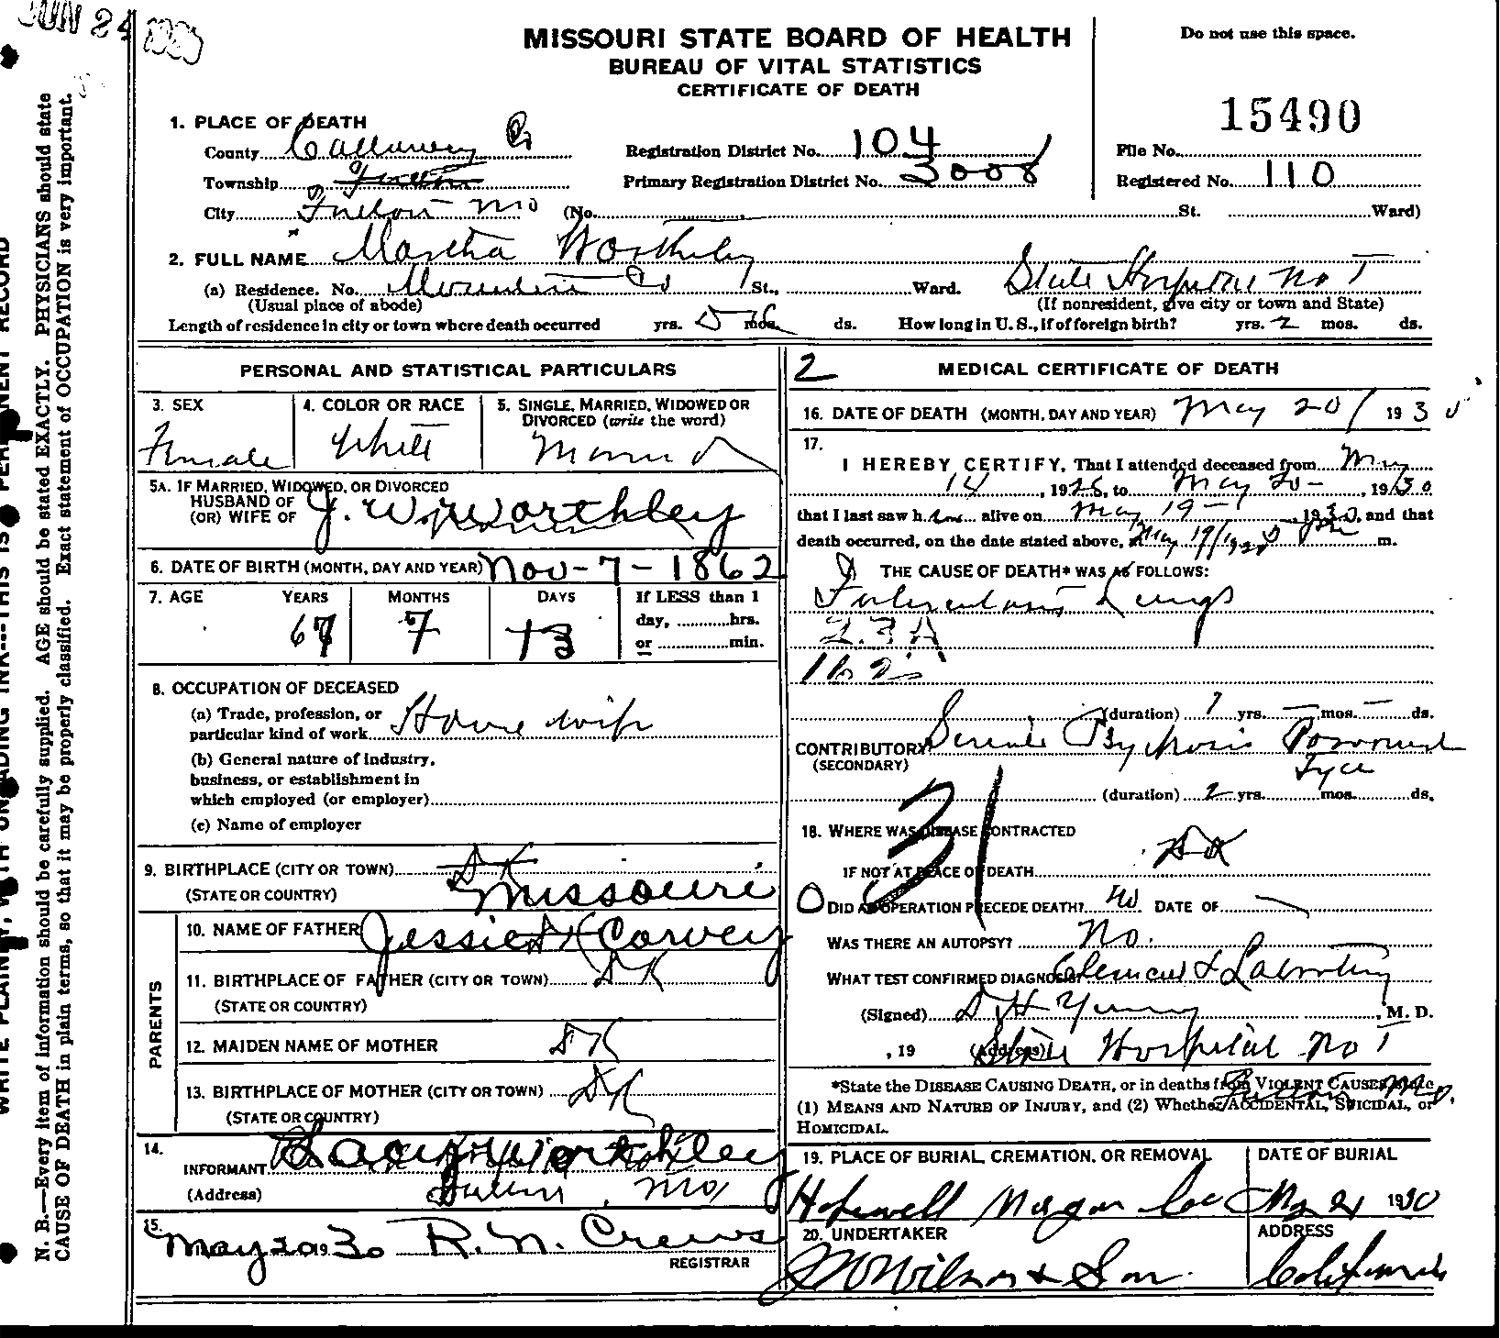 JUN 24
MISSOURI STATE BOARD OF HEALTH
BUREAU OF VITAL STATISTICS
CERTIFICATE OF DEATH
Do not use this space.
15490
1. PLACE OF DEATH
County Callaway Co
Township Fulton
City Fulton Mo (No. St. Ward)
Registration District No. 104
Primary Registration District No. 3008
File No.
Registered No. 110
2. FULL NAME Martha Worthley
(a) Residence. No. St., Ward. State Hospital No 1
(Usual place of abode) (If nonresident, give city or town and State)
Length of residence in city or town where death occurred yrs. mos. ds. How long in U.S., if of foreign birth? yrs. 2 mos. ds.
PERSONAL AND STATISTICAL PARTICULARS
3. SEX
Female
4. COLOR OR RACE
White
5. SINGLE, MARRIED, WIDOWED OR
DIVORCED (write the word)
Married
5A. IF MARRIED, WIDOWED, OR DIVORCED
HUSBAND OF
(OR) WIFE OF J. W. Worthley
6. DATE OF BIRTH (MONTH, DAY AND YEAR) Nov-7-1862
7. AGE YEARS MONTHS DAYS If LESS than 1
day, hrs.
or min.
67 7 13
8. OCCUPATION OF DECEASED
(a) Trade, profession, or
particular kind of work House wife
(b) General nature of industry,
business, or establishment in
which employed (or employer)
(c) Name of employer
9. BIRTHPLACE (CITY OR TOWN) DK
(STATE OR COUNTRY) Missouri
PARENTS
10. NAME OF FATHER Jessie Corvey
11. BIRTHPLACE OF FATHER (CITY OR TOWN) DK
(STATE OR COUNTRY)
12. MAIDEN NAME OF MOTHER DK
13. BIRTHPLACE OF MOTHER (CITY OR TOWN) DK
(STATE OR COUNTRY)
14.
INFORMANT Worthley
(Address) Fulton, Mo,
15. May 20 1930 R. N. Crews
REGISTRAR
2 MEDICAL CERTIFICATE OF DEATH
16. DATE OF DEATH (MONTH, DAY AND YEAR) May 20/ 1930
17.
I HEREBY CERTIFY, That I attended deceased from May
14, 1928, to May 20-, 1930
that I last saw her alive on May 19-, 1930, and that
death occurred, on the date stated above, at May 19/1930 m.
THE CAUSE OF DEATH* WAS AS FOLLOWS:
Tuberculosis Lungs
23A
162
(duration) 1 yrs. — mos. — ds.
CONTRIBUTORY Senile Psychosis Paranoid
(SECONDARY) Type
(duration) 2 yrs. mos. ds.
31
18. WHERE WAS DISEASE CONTRACTED
IF NOT AT PLACE OF DEATH DK
0 DID AN OPERATION PRECEDE DEATH? No DATE OF
WAS THERE AN AUTOPSY? No.
WHAT TEST CONFIRMED DIAGNOSIS? Clinical & Laboratory
(Signed) D H Young, M. D.
, 19 (Address) State Hospital No 1
Fulton Mo.
*State the DISEASE CAUSING DEATH, or in deaths from VIOLENT CAUSES, state
(1) MEANS AND NATURE OF INJURY, and (2) Whether ACCIDENTAL, SUICIDAL, or
HOMICIDAL.
19. PLACE OF BURIAL, CREMATION, OR REMOVAL
Hopewell Morgan Co
DATE OF BURIAL
May 21 1930
20. UNDERTAKER
Wilson & Son
ADDRESS
California
WRITE PLAINLY, WITH UNFADING INK---THIS IS A PERMANENT RECORD
N. B.—Every item of information should be carefully supplied. AGE should be stated EXACTLY. PHYSICIANS should state
CAUSE OF DEATH in plain terms, so that it may be properly classified. Exact statement of OCCUPATION is very important.